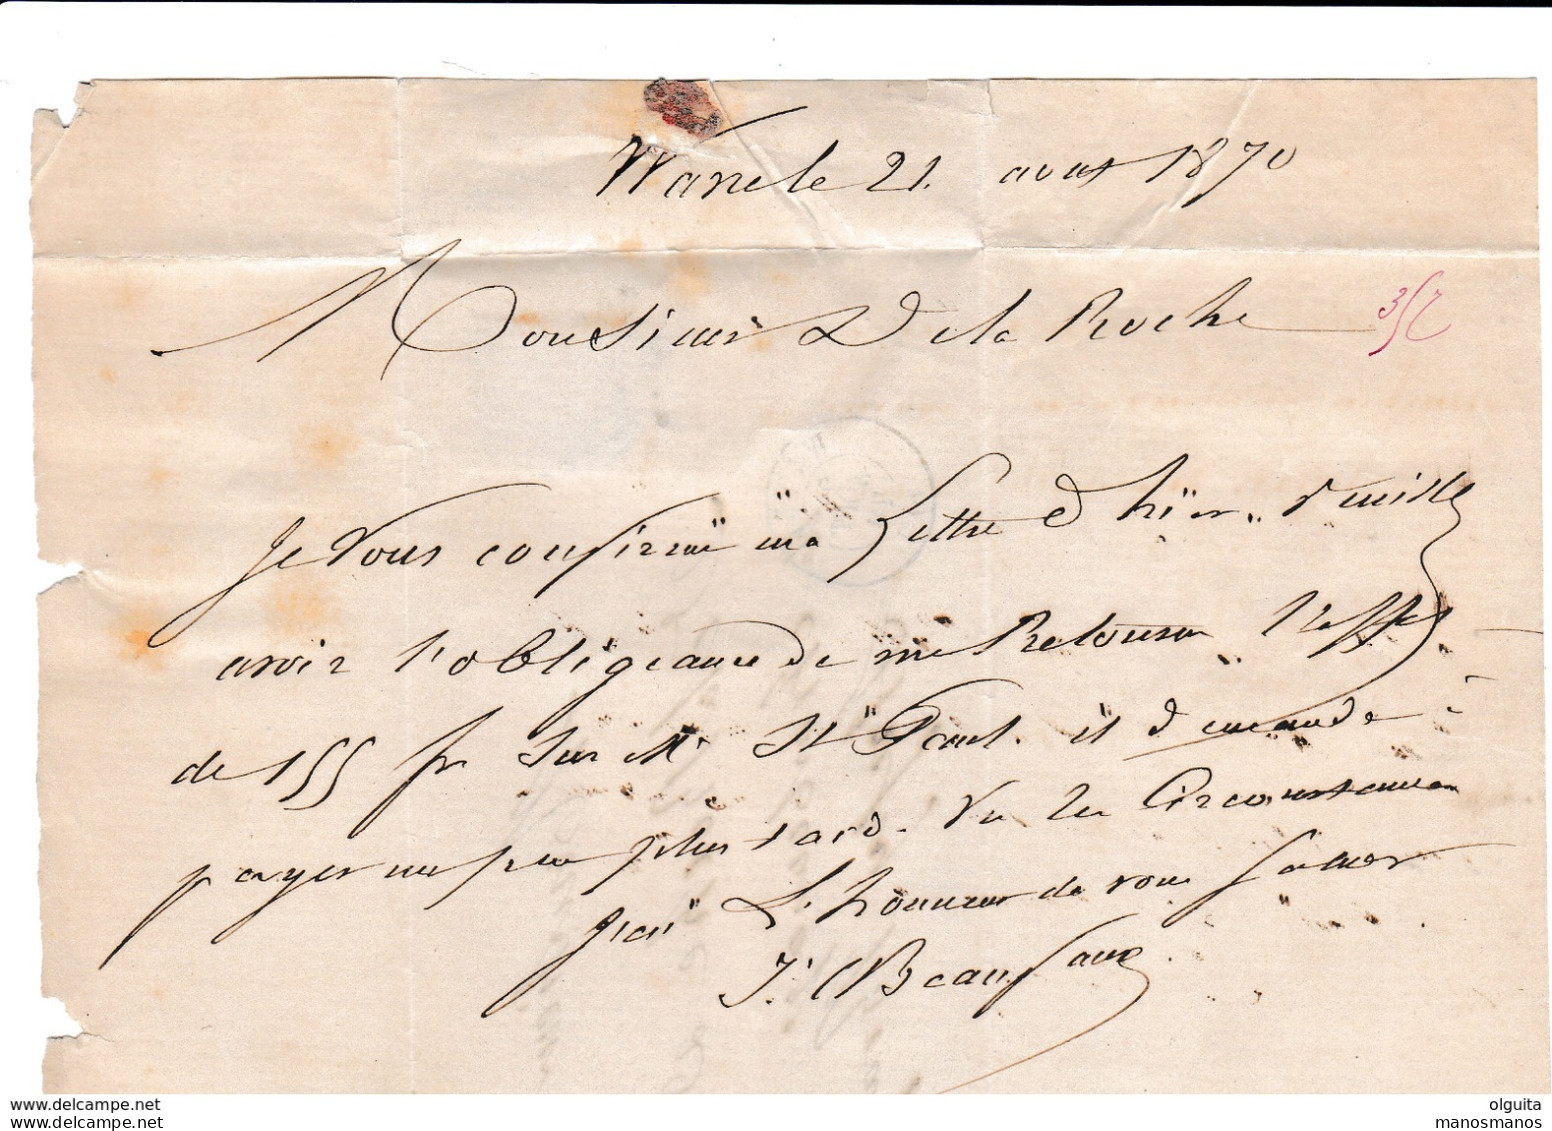 Wanele 21. aout 1870
Monsieur Delaroche
357
Je vous confirme ma lettre d'hier. veuillez
avoir l'obligeance de me Retourner l'effet
de 155 fr sur Mr St Paul. il demande à
payer un peu plus tard. Vu les Circonstances
J'ai L'honneur de vous saluer
J. Beaufaux
olguita
manosmanos
olguita
manosmanos